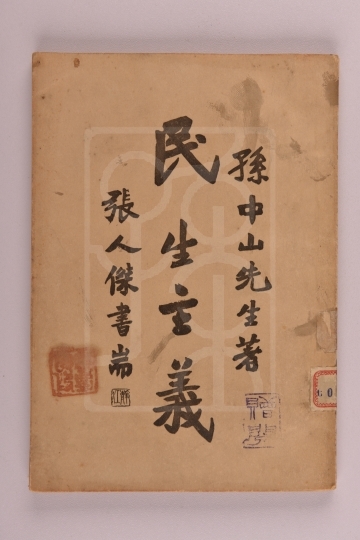 孫中山先生著
民生主義
張人傑書耑
贈